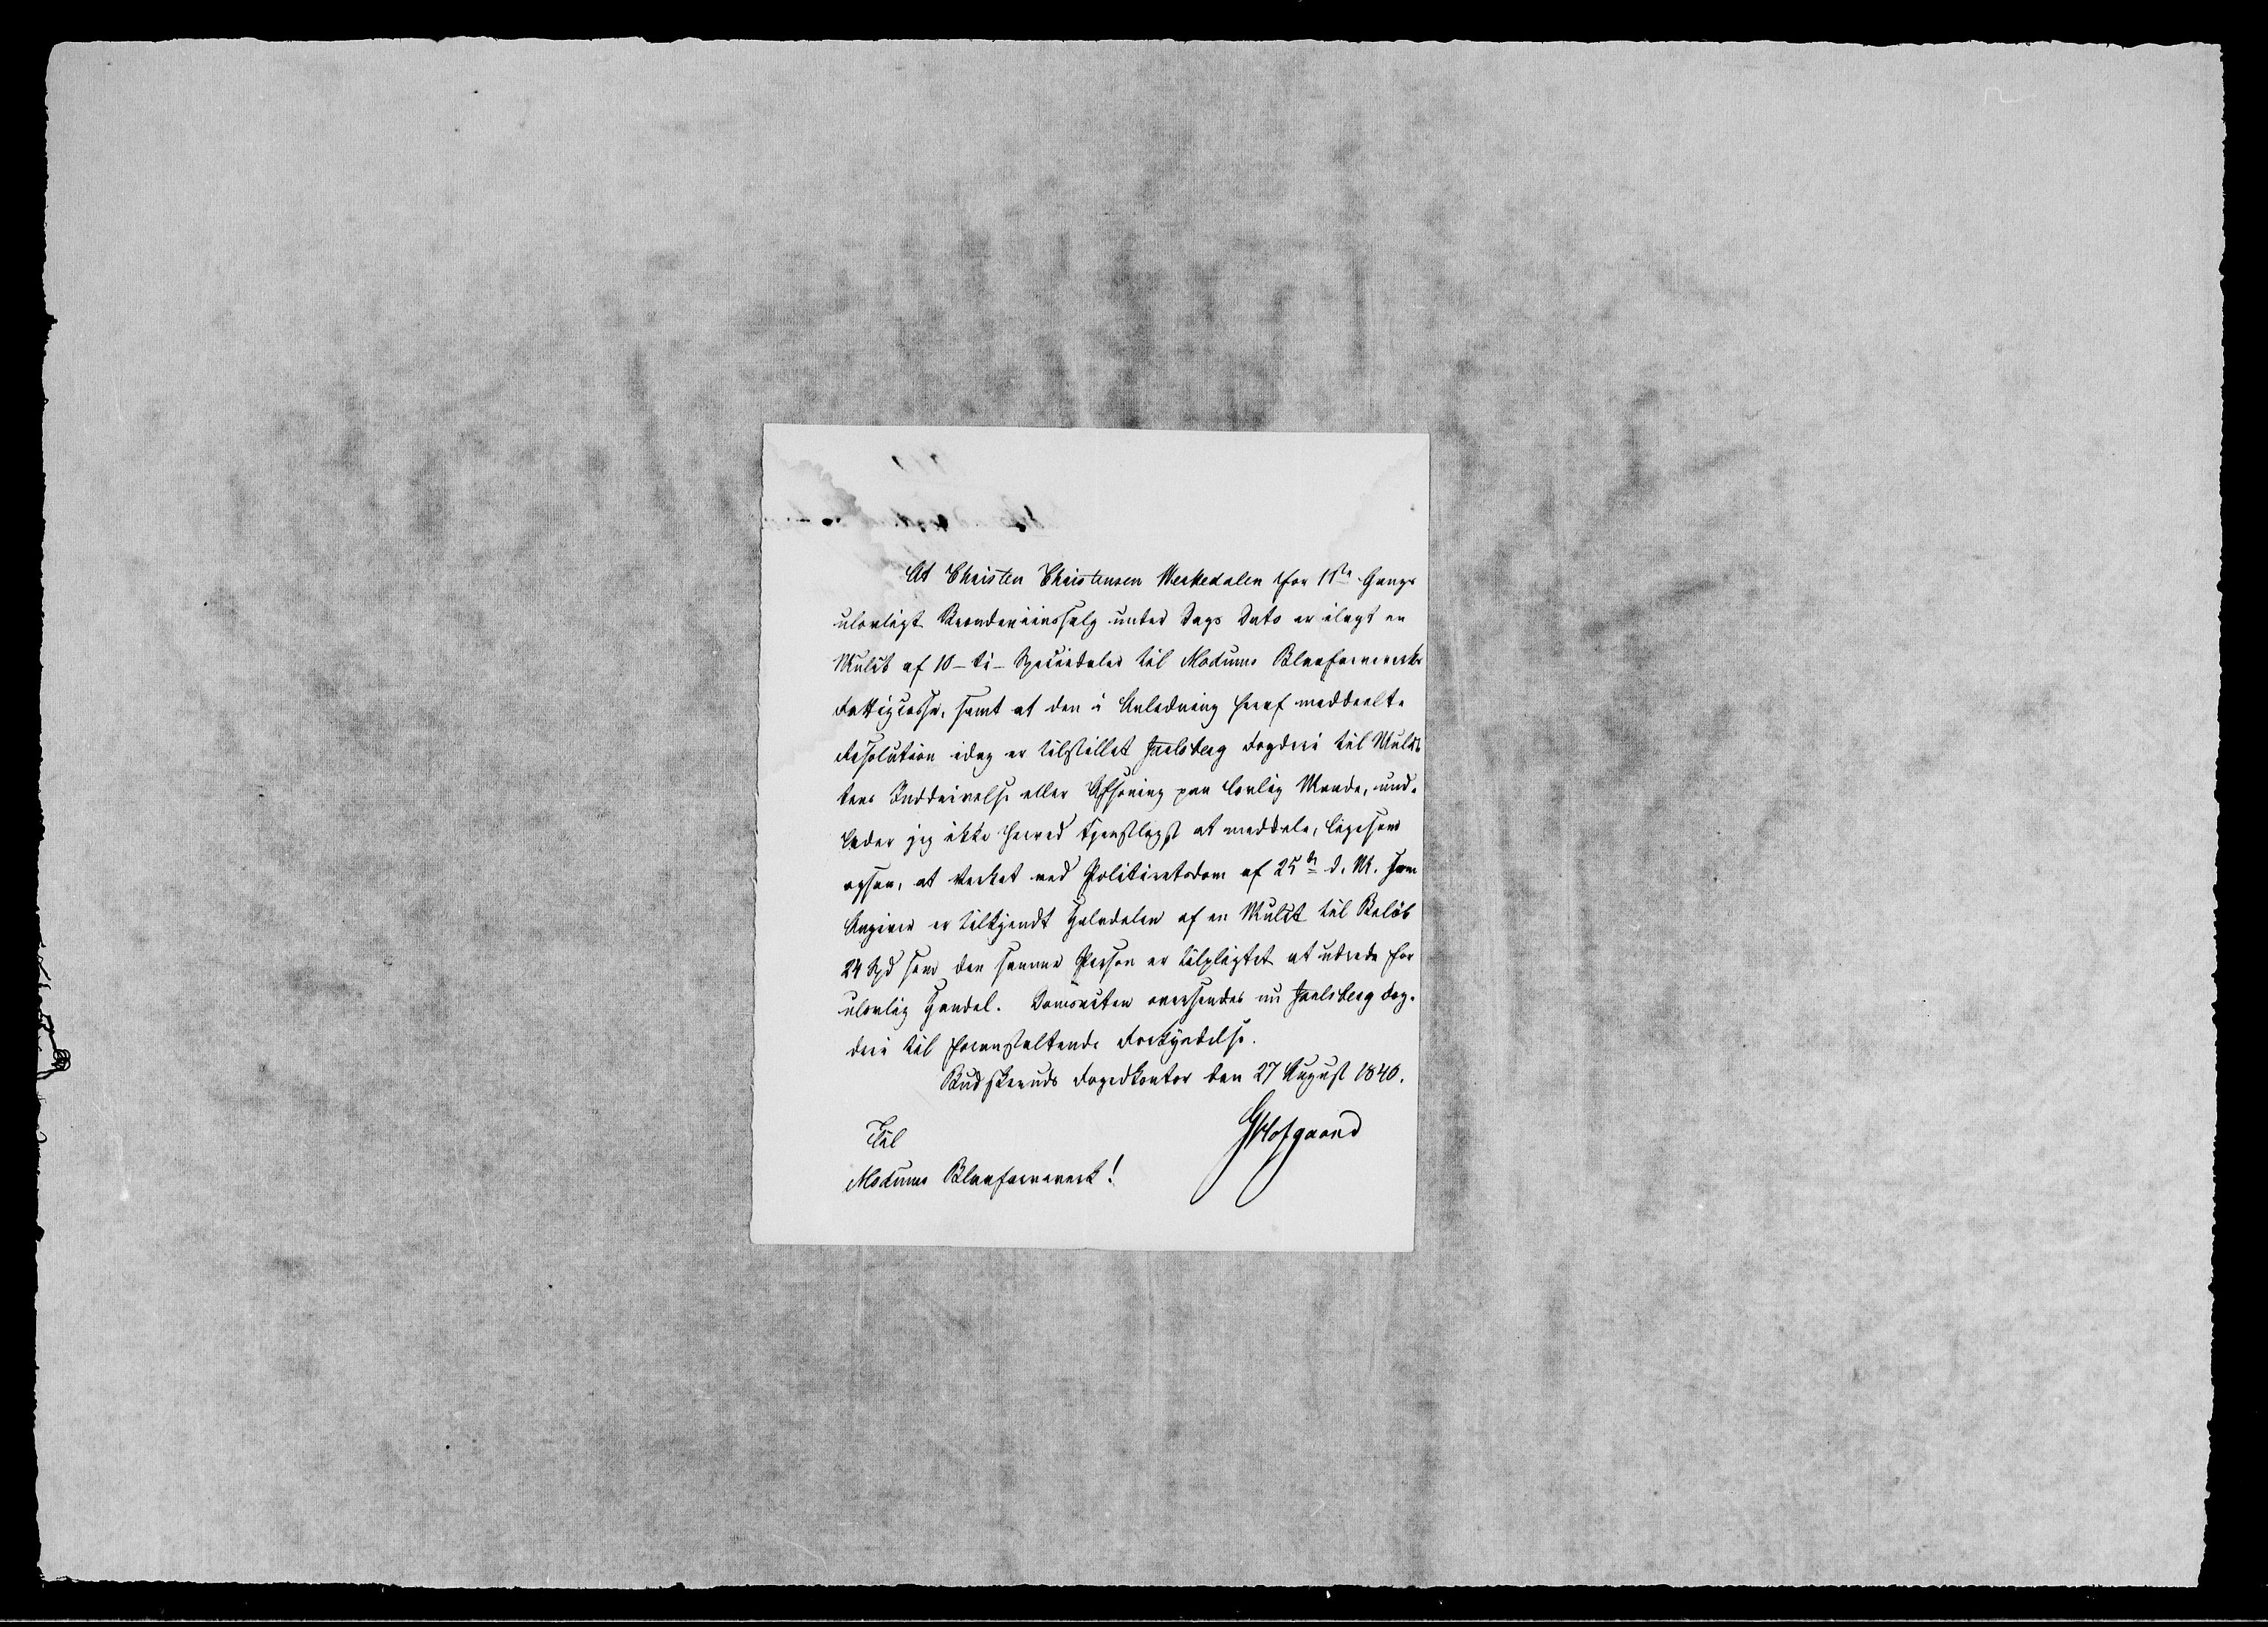 At Christen Christensen Merkedalen for 1ste Gangs
ulovligt Brændeviinssalg under Dags Dato er ilagt en
Mulct af 10 - ti - Speciedaler til Modums Blaafarveværks
Fattigcasse, samt at den i Anledning heraf meddeelte
Resolution idag er tilstillet Jarlsberg Fogderi til Mulc-
tens Inddrivelse eller Afsoning paa lovlig Maade, und-
lader jeg ikke herved tjenstligst at meddele, ligesom
ogsaa, at Værket ved Politiretsdom af 25de d. M. som
Angiver er tilkjendt Halvdelen af en Mulct til Beløb
24 Spd som den samme Person er tilpligtet at udrede for
ulovlig Handel. Domsacten oversendes nu Jarlsberg Fog-
deri til foranstaltende Forkyndelse.
Budskeruds Fogedkontor den 27 August 1840.
GHofgaard
Til
Modums Blaafarveværk!